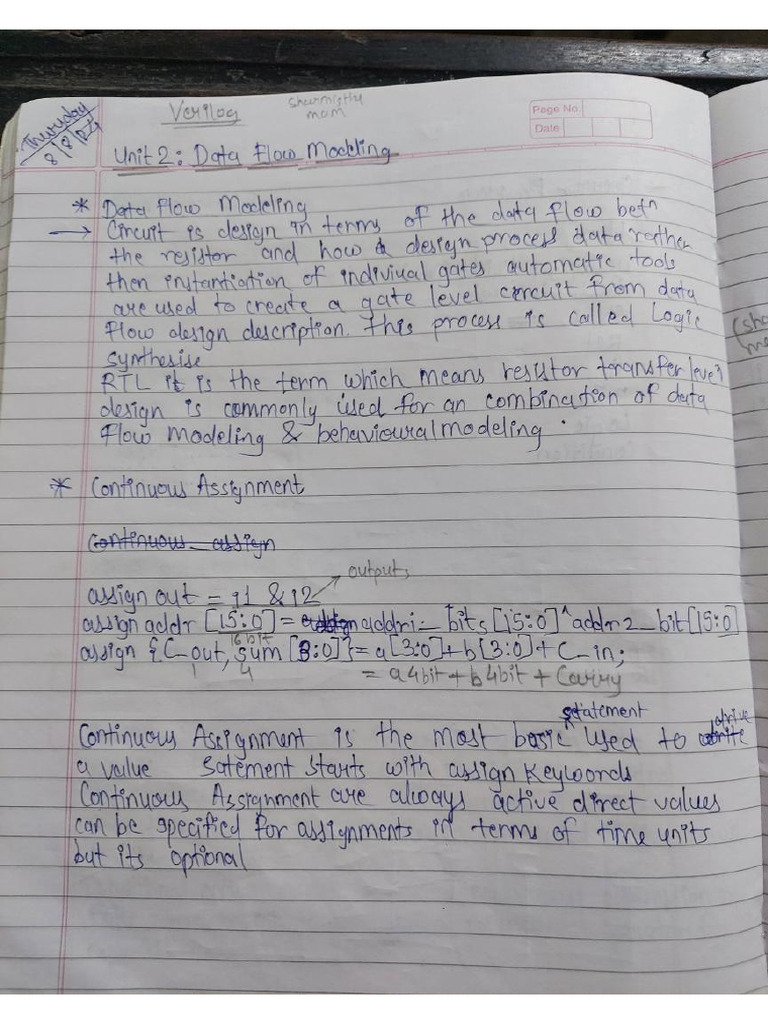 Thursday
8/8/24
Verilog
Sharmistha
mam
Page No.
Date
Unit 2: Data Flow Modeling
* Data flow Modeling
→ Circuit is design in terms of the data flow betn
the resistor and how a design process data rather
then instantiation of indiviual gates automatic tools
are used to create a gate level circuit from data
flow design description. this process is called Logic
synthesise
RTL it is the term which means resistor transfer level
design is commonly used for an combination of data
flow modeling & behavioural modeling.
* Continuous Assignment
Continuous assign
outputs
assign out = i1 & i2
assign addr [15:0] = addr1_bits [15:0] ^ addr2_bit [15:0]
16 bit
assign {C_out, sum [3:0]} = a[3:0] + b[3:0] + C_in;
1 4
= a 4bit + b 4bit + Carry
statement
Continuous Assignment is the most basic used to drive
a value satement starts with assign keywords
Continuous Assignment are always active direct values
can be specified for assignments in terms of time units
but its optional
(sha